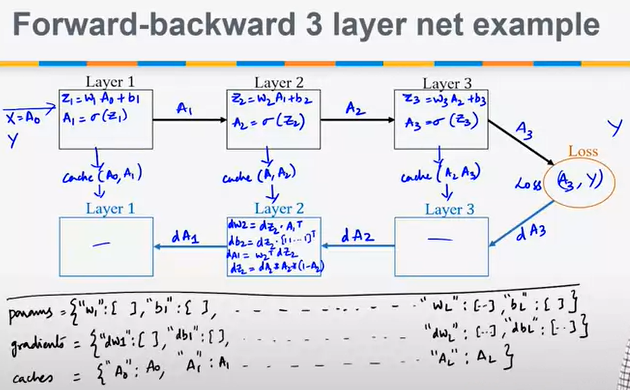 Forward-backward 3 layer net example
Layer 1
Layer 2
Layer 3
X=A₀
Y
Z₁=W₁A₀+b₁
A₁=σ(Z₁)
A₁
Z₂=W₂A₁+b₂
A₂=σ(Z₂)
A₂
Z₃=W₃A₂+b₃
A₃=σ(Z₃)
A₃
Y
Loss
Loss (A₃, Y)
cache (A₀,A₁)
cache (A₁ A₂)
cache (A₂ A₃)
Layer 1
Layer 2
Layer 3
dA₁
dW₂ = dZ₂ · A₁ᵀ
db₂ = dZ₂ · [1 1 ... 1]ᵀ
dA₁ = W₂ᵀ dZ₂
dZ₂ = dA₂ * A₂ * (1-A₂)
dA₂
dA₃
params = {"W₁": [ ], "b₁": [ ], . - - - - - - - - "W_L": [--], "b_L": [ ] }
gradients = {"dW1": [ ], "db₁": [ ], . - - - - - - "dW_L": [..], "db_L": [..] }
caches = { "A₀": A₀, "A₁": A₁ - - - - - - - "A_L": A_L }